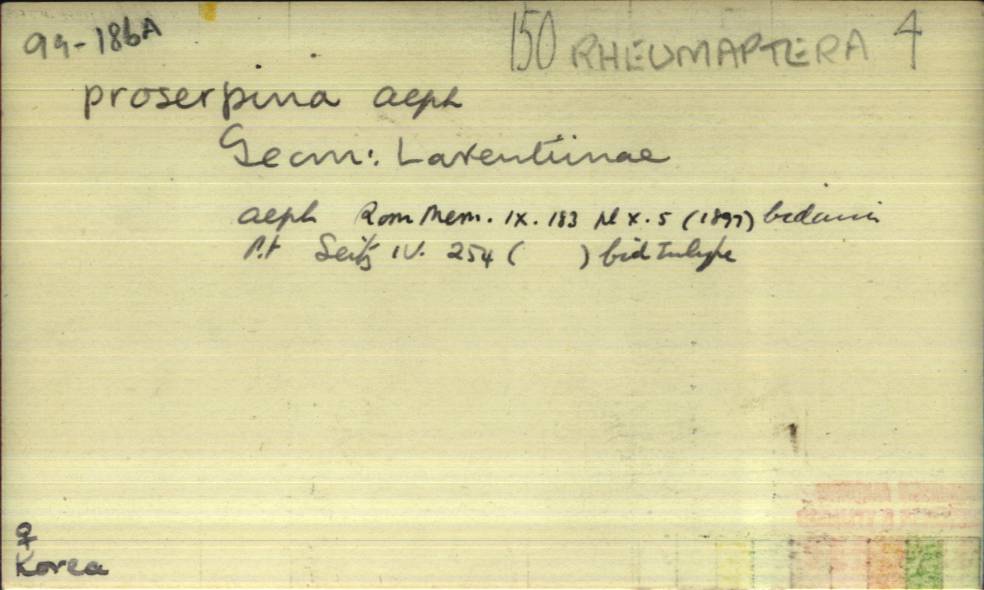 99-186A 150 RHEUMAPTERA 4
proserpina Alph
Geom: Larentiinae
Alph Rom Mem. IX. 183 pl X. 5 (1897)
Seitz IV. 254 ( )
♀
Korea